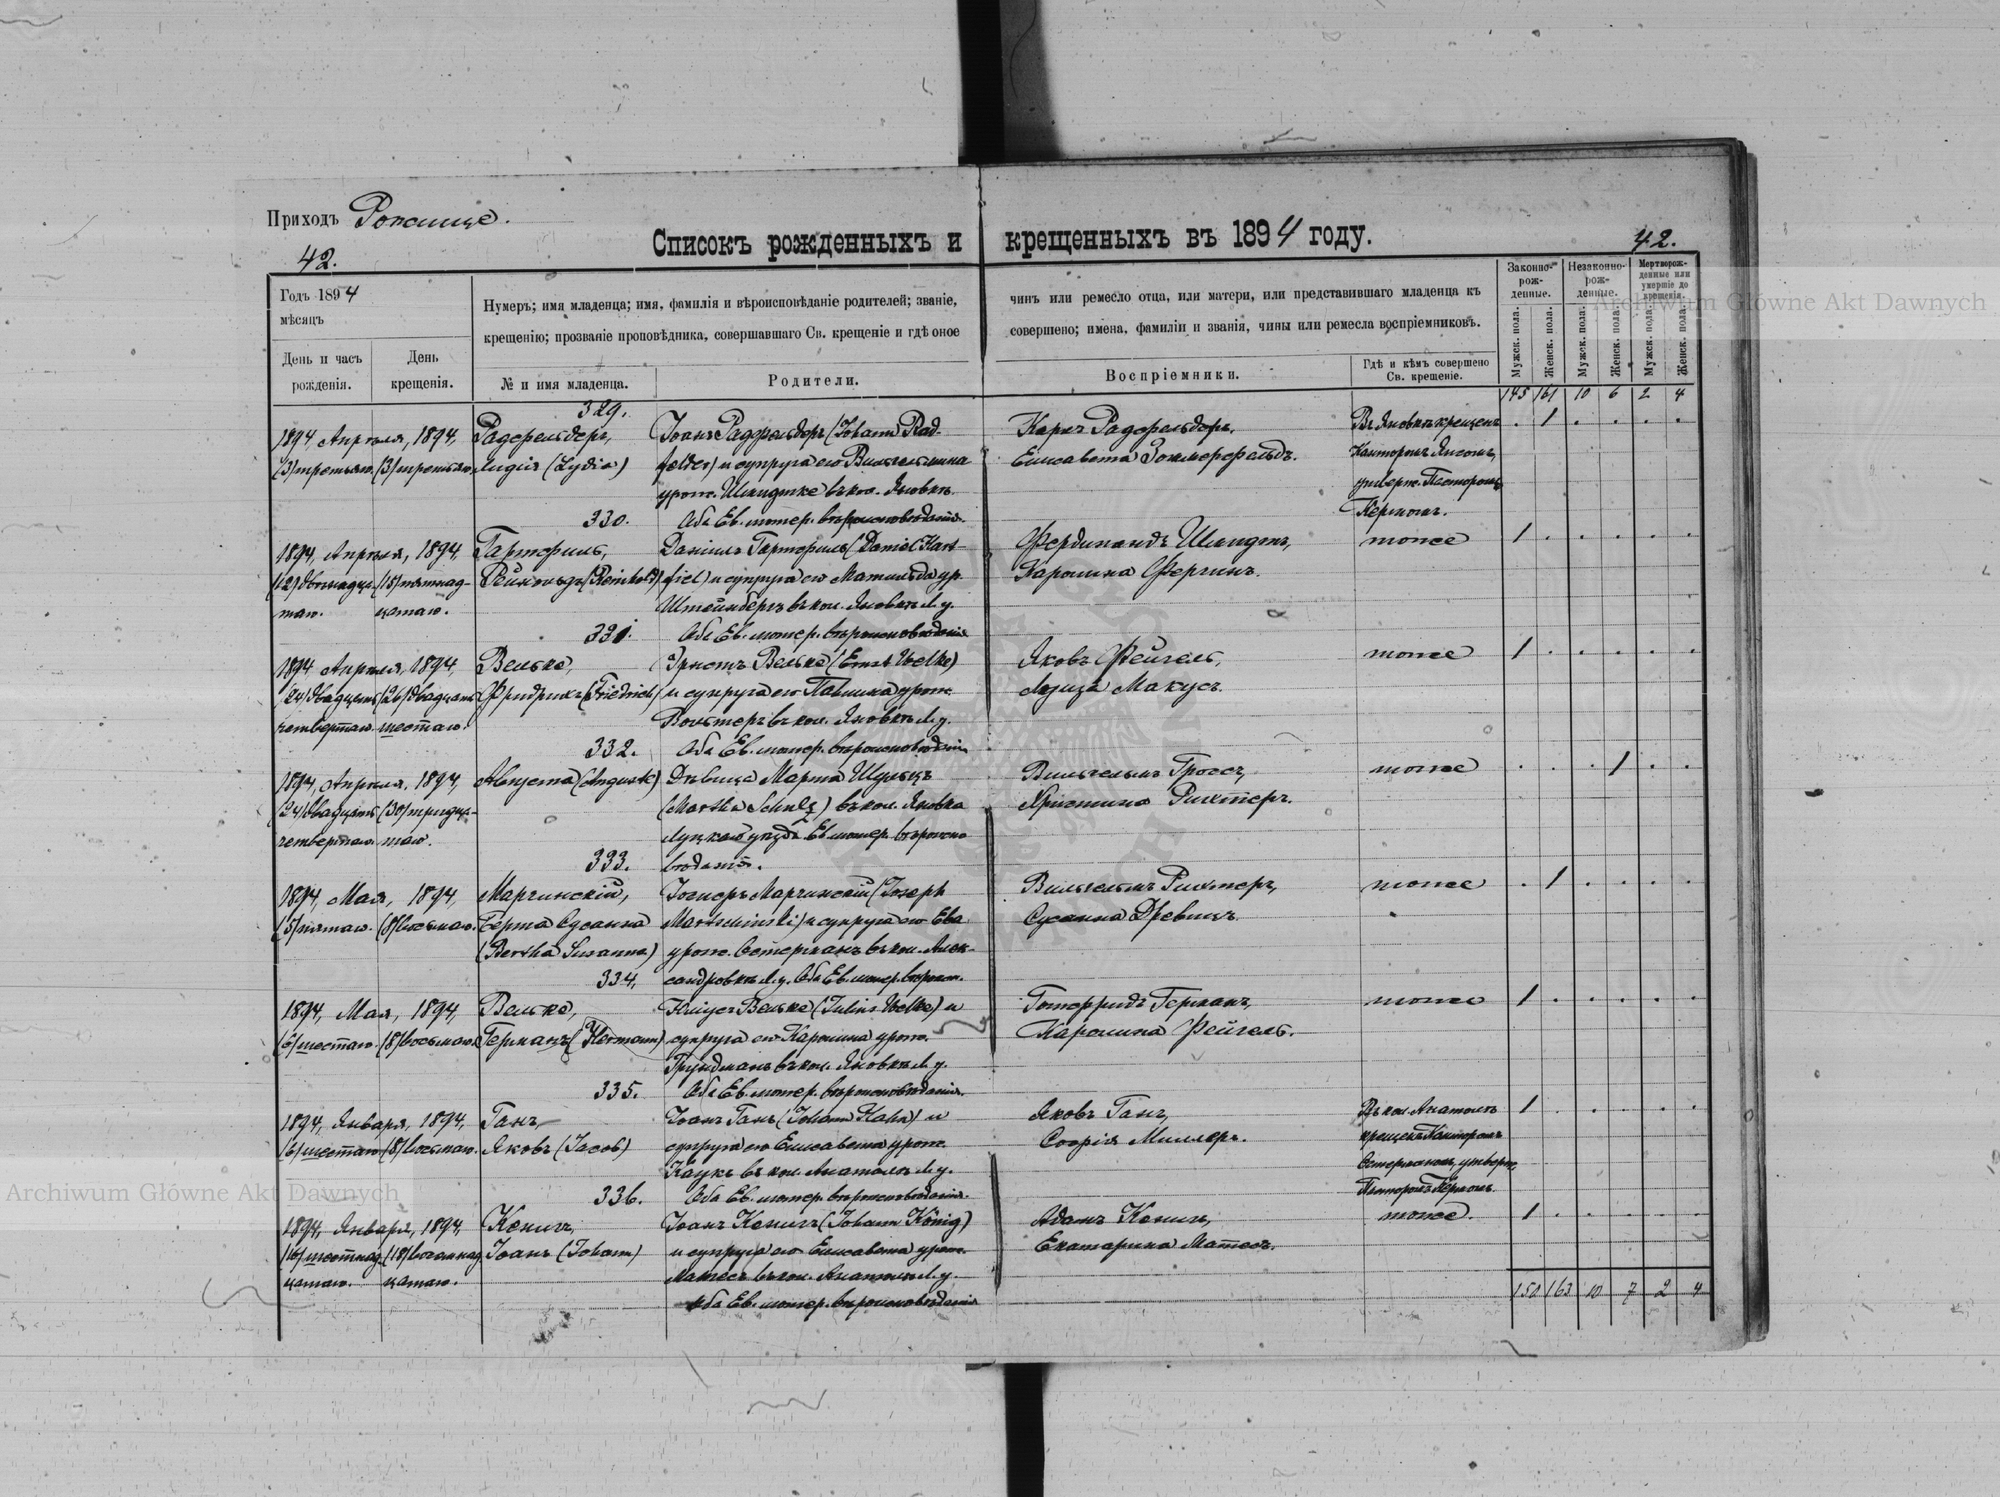 Приходъ Рожище.
42.
Списокъ рожденныхъ и крещенныхъ въ 1894 году.
42.
Годъ 1894
мѣсяцъ
День и часъ рожденія.
День крещенія.
Нумеръ; имя младенца; имя, фамилія и вѣроисповѣданіе родителей; званіе, чинъ или ремесло отца, или матери, или представившаго младенца къ
крещенію; прозваніе проповѣдника, совершавшаго Св. крещеніе и гдѣ оное совершено; имена, фамиліи и званія, чины или ремесла воспріемниковъ.
№ и имя младенца.
Родители.
Воспріемники.
Гдѣ и кѣмъ совершено Св. крещеніе.
Законно-рож-денные.
Незаконно-рож-денные.
Мертворож-денные или умершіе до крещенія.
Мужск. пола.
Женск. пола.
Мужск. пола.
Женск. пола.
Мужск. пола.
Женск. пола.
145 161 10 6 2 4
329.
1894, Апрѣля, 1894,
(3) третьяго. (3) третьяго.
Радфельдеръ,
Лидія (Lydia)
Іоанъ Радфельдеръ (Johann Rad-
felder) и супруга его Вильгельмина
урож. Шмидтке въ кол. Яновкѣ
Оба Ев. лютер. вѣроисповѣданія.
Карлъ Радфельдеръ,
Елисавета Зоммерфельдъ.
Въ Яновкѣ крещенъ
Канторомъ
утверж. Пасторомъ
Кермомъ.
. 1 . . . .
330.
1894, Апрѣля, 1894,
(12) двѣнадца- (15) пятнад-
таго. цатаго.
Гартфиль,
Рейнольдъ (Reinhold)
Даніилъ Гартфиль (Daniel Hart-
fiel) и супруга его Матильда ур.
Штейнбергъ въ кол. Яновкѣ Л. у.
Оба Ев. лютер. вѣроисповѣданія
Фердинандъ Шмидтъ,
Каролина Фергинъ.
тоже
1 . . . . .
331.
1894, Апрѣля, 1894,
(24) двадцать (26) двадцать
четвертаго шестаго.
Вельке,
Фридрихъ (Friedrich)
Эрнстъ Вельке (Ernst Welke)
и супруга его Павлина урож.
Вольтеръ въ кол. Яновкѣ Л. у.
Оба Ев. лютер. вѣроисповѣданія
Яковъ Фейгель,
Луиза Макусъ.
тоже
1 . . . . .
332.
1894, Апрѣля, 1894,
(24) двадцать (30) тридца-
четвертаго таго.
Августа (Auguste)
Дѣвица Марта Шульцъ
(Martha Schulz) въ кол. Яновка
Луцкаго уѣзда Ев. лютер. вѣроиспо-
вѣданія.
Вильгельмъ Гроссъ,
Христина Рихтеръ.
тоже
. . . 1 . .
333.
1894, Мая, 1894,
(5) пятаго. (8) восьмаго.
Марчинскій,
Берта Сусанна
(Bertha Susanna)
Іосифъ Марчинскій (Joseph
Martschinski) и супруга его Ева
урож. Остерманъ въ кол. Алек-
сандровкѣ Л. у. Оба Ев. лютер. вѣроисп.
Вильгельмъ Рихтеръ,
Сусанна Древицъ.
тоже
. 1 . . . .
334.
1894, Мая, 1894,
(6) шестаго. (8) восьмаго.
Вельке,
Германъ (Hermann)
Юліусъ Вельке (Julius Welke) и
супруга его Каролина урож.
Грундманъ въ кол. Яновкѣ Л. у.
Оба Ев. лютер. вѣроисповѣданія.
Готфридъ Германъ,
Каролина Фейгель.
тоже
1 . . . . .
335.
1894, Января, 1894,
(6) шестаго (8) восьмаго.
Ганъ
Яковъ (Jacob)
Іоанъ Ганъ (Johann Hahn) и
супруга его Елисавета урож.
Каукъ въ кол. Анатолѣ Л. у.
Оба Ев. лютер. вѣроисповѣданія.
Яковъ Ганъ,
Софія Миллеръ.
Въ кол. Анатолѣ
крещенъ Канторомъ
Остерманомъ, утверж.
Пасторомъ Кермомъ.
1 . . . . .
336.
1894, Января, 1894,
(16) шестнад- (18) восемнад-
цатаго. цатаго.
Кенигъ,
Іоанъ (Johann)
Іоанъ Кенигъ (Johann König)
и супруга его Елисавета урож.
Матесъ въ кол. Анатолѣ Л. у.
Оба Ев. лютер. вѣроисповѣданія
Адамъ Кенигъ,
Екатарина Матесъ.
тоже.
1 . . . . .
150 163 10 7 2 4
Archiwum Główne Akt Dawnych
Archiwum Główne Akt Dawnych